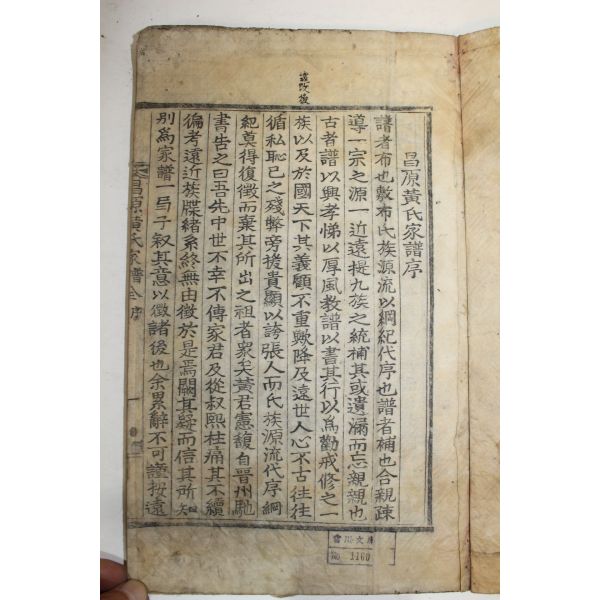 昌原黃氏家譜序
譜者布也敷布氏族源流以綱紀代序也譜者補也合親疎
導一宗之源一近遠提九族之統補其或遺漏而忘親親也
古者譜以興孝悌以厚風敎譜以書其行以爲勸戒修之一
族以及於國天下其義顧不重歟降及遠世人心不古往往
循私恥已之殘弊旁援貴顯以誇張人而氏族源流代序綱
紀莫得復徵而棄其所出之祖者衆矣黃君憲馥自晋州馳
書告之曰吾先中世不幸不傳家君及從叔熙柱痛其不續
徧考遠近族牒緖系終無由徵於是焉闕其疑而信其所知
別爲家譜一弓子叙其意以徵諸後也余累辭不可謹按遠
昌原黃氏家譜全 序
一
文庫
1160